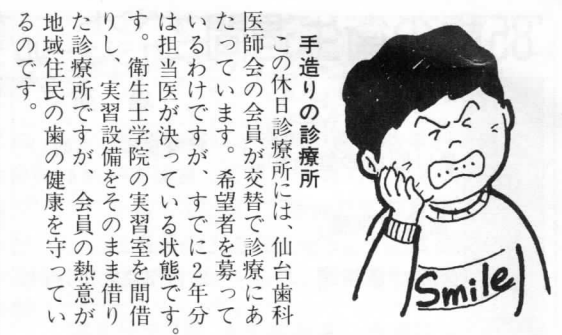 手造りの診療所
この休日診療所には、仙台歯科
医師会の会員が交替で診療にあ
たっています。希望者を募って
いるわけですが、すでに2年分
は担当医が決っている状態です。
す。衛生士学院の実習室を間借
りし、実習設備をそのまま借り
た診療所ですが、会員の熱意が
地域住民の歯の健康を守ってい
るのです。
Smile